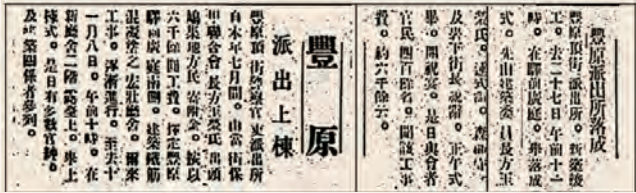 豐原派出所落成
豐原頂街派出所。新築竣
工。去二十七日午前十一
時。在驛前廣庭。舉落成
式。先由建築委員長方玉
榮氏。述式詞。森郡守。
及岩下街長祝辭。正午式
畢。開祝宴。是日與會者
官民四百餘名。聞該工事
費。約六千餘六。
豐原
派出上棟
豐原頂街警察官吏派出所
自本年七月間。由當街保
甲聯合會長方玉榮氏出頭
鳩集地方民寄附金。按以
六千餘圓工費。擇定豐原
驛前廣庭南側。建築鐵筋
混凝塗之宏壯廳舍。爾來
工事。逐漸進行。至去十
一月八日。午前十時。在
新廳舍二階露臺上。舉上
棟式。是日有多數官紳。
及建築關係者參列。